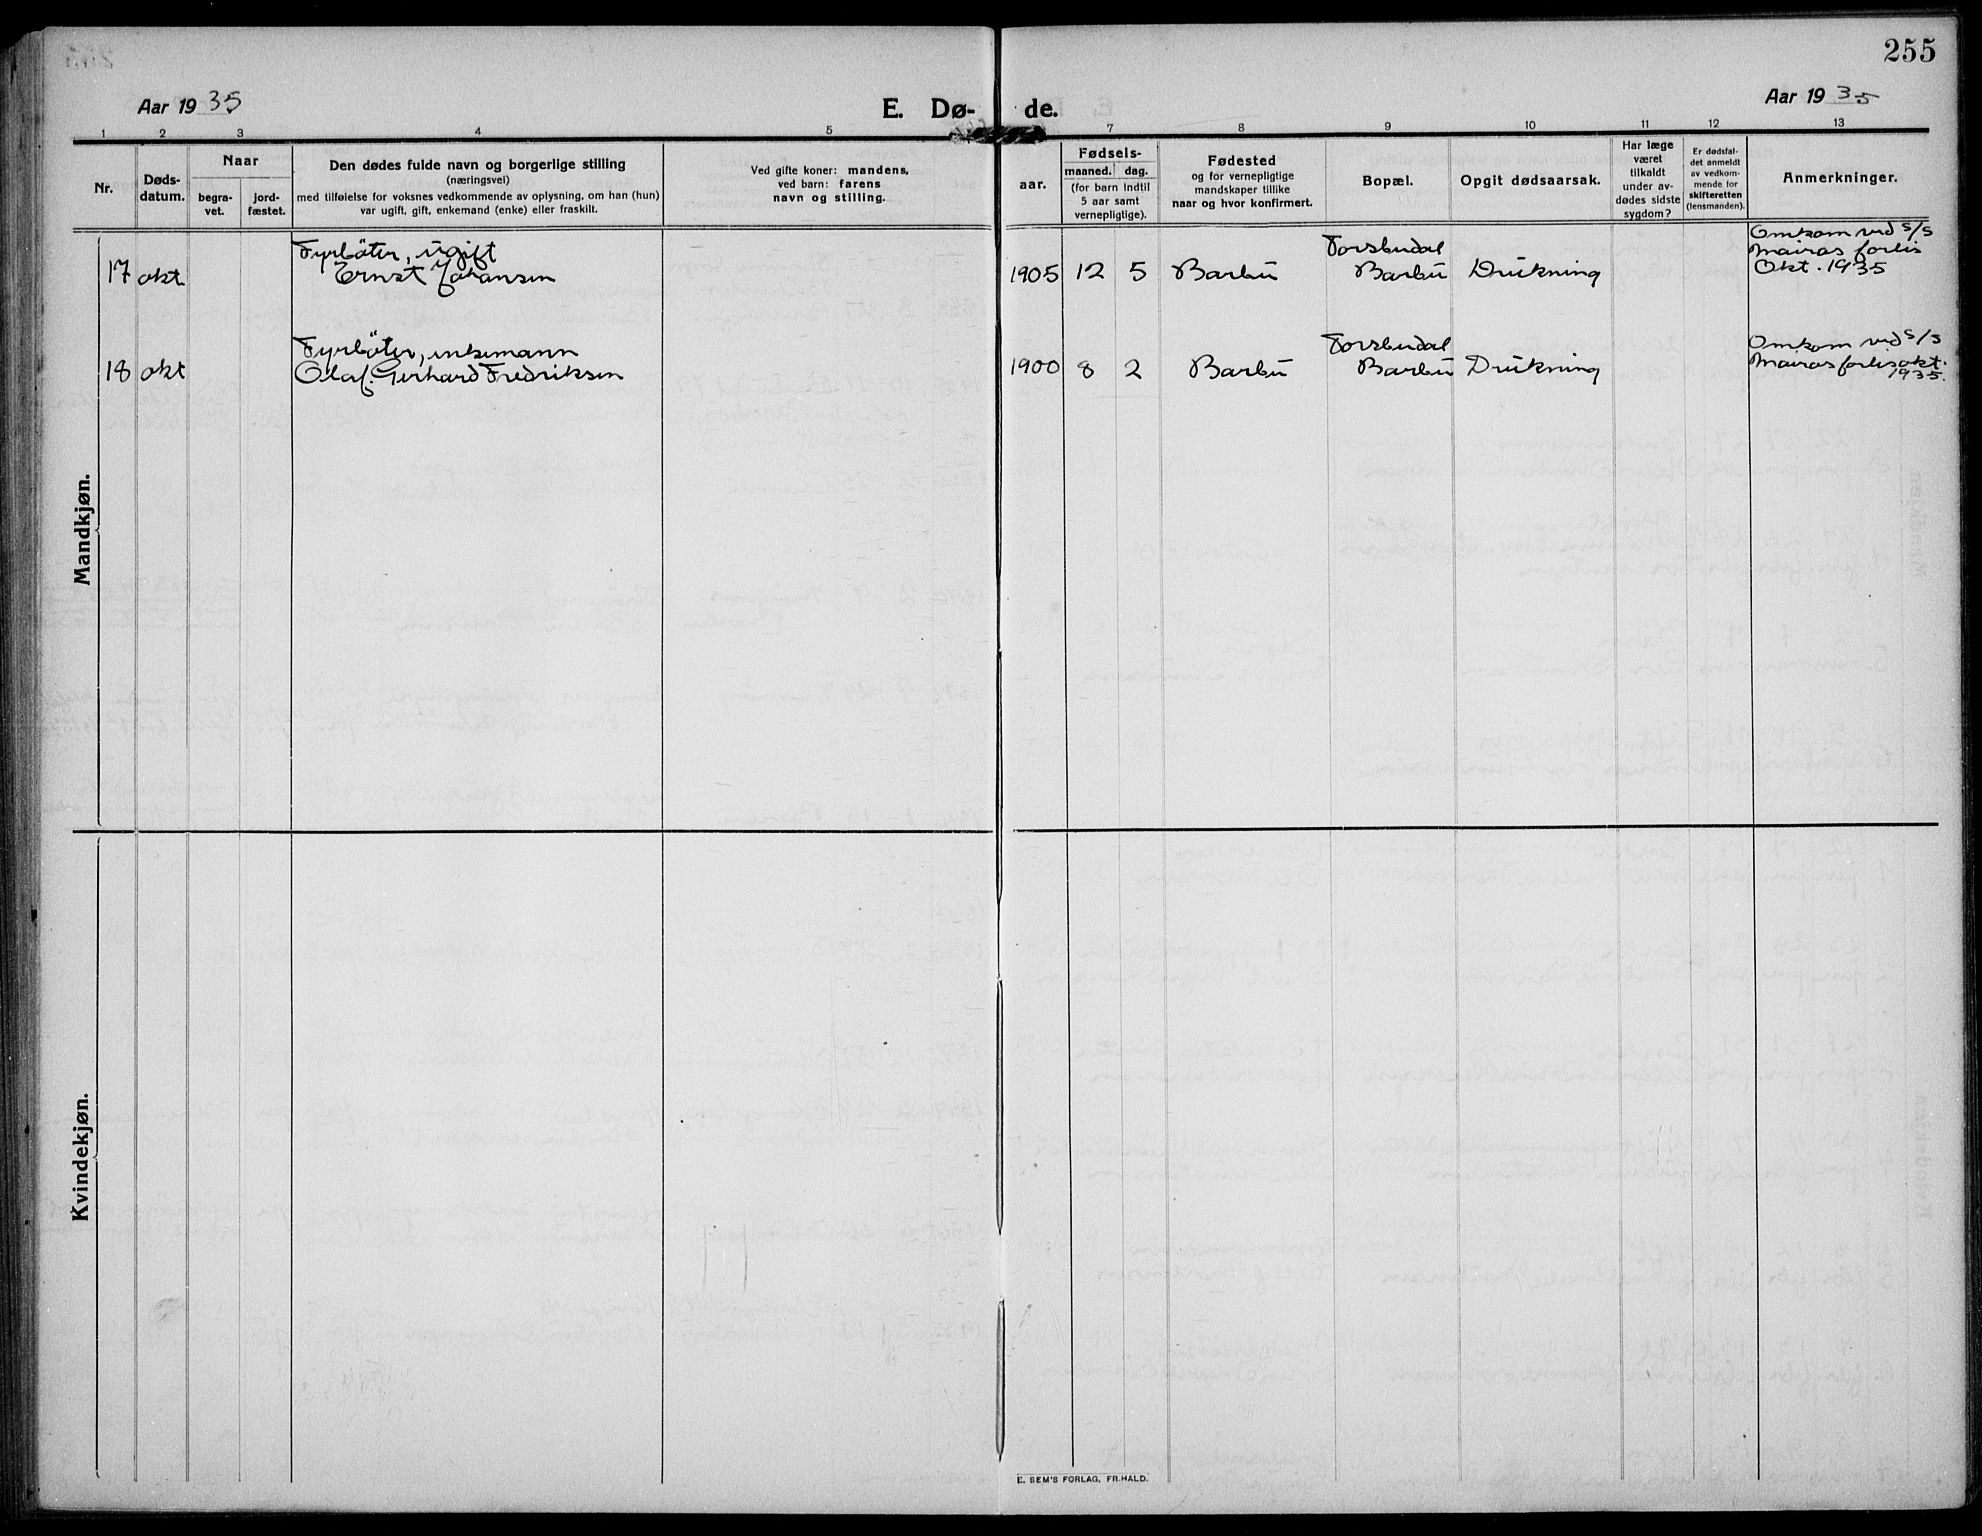 255
Aar 1935
E. Dø-
de.
Aar 1935
1 2 3 4 5 7 8 9 10 11 12 13
Nr.
Døds-
datum.
Naar
begra-
vet.
jord-
fæstet.
Den dødes fulde navn og borgerlige stilling
(næringsvei)
med tilføielse for voksnes vedkommende av oplysning, om han (hun)
var ugift, gift, enkemand (enke) eller fraskilt.
Ved gifte koner: mandens,
ved barn: farens
navn og stilling.
aar.
Fødsels-
maaned. dag.
(for barn indtil
5 aar samt
vernepligtige).
Fødested
og for vernepligtige
mandskaper tillike
naar og hvor konfirmert.
Bopæl.
Opgit dødsaarsak.
Har læge
været
tilkaldt
under av-
dødes sidste
sygdom?
Er dødsfal-
det anmeldt
av vedkom-
mende for
skifteretten
(lensmanden).
Anmerkninger.
Mandkjøn.
Fyrbøter, ugift
17 okt Ernst Johansen
1905 12 5 Barbu
Torsbudal
Barbu Drukning
Omkom ved s/s
Mairas forlis
Okt. 1935
Fyrbøter, enkemann
18 okt Olaf Gerhard Fredriksen
1900 8 2 Barbu
Torsbudal
Barbu Drukning
Omkom ved s/s
Mairas forlis okt.
1935.
Kvindekjøn.
E. SEM'S FORLAG, FR.HALD.